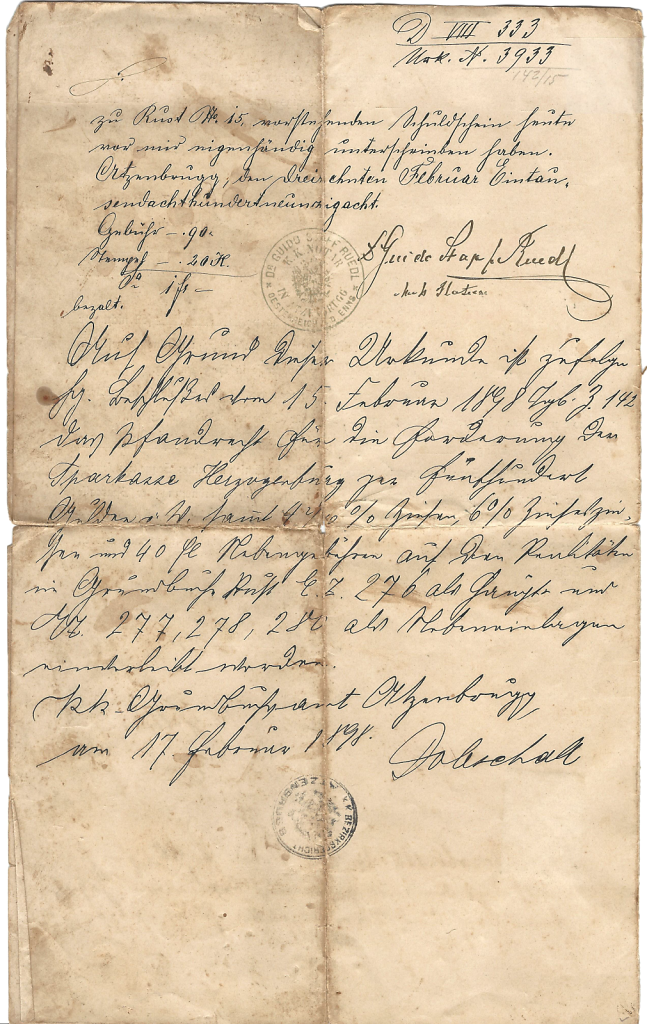 D VIII 333
Urk. N. 3933
142/15
zu Rust No. 15, vorstehenden Schuldschein heute
vor mir eigenhändig unterschrieben haben.
Atzenbrugg, den dreizehnten Februar Eintau-
sendachthundertneunzigacht.
Gebühr – . 90.
Stempel – . 20 K.
1 fl –
bezalt.
Dr Guido Stapf Ruedl
k. k. Notar
DR GUIDO STAPF RUEDL
K. K. NOTAR
IN
Auf Grund dieser Urkunde ist zufolge
hg. Beschlußes vom 15. Februar 1898 Tgb. Z. 142
das Pfandrecht für die Forderung der
Sparkasse Herzogenburg per fünfhundert
Gulden ö. W. samt % Zinsen, 6% Zinseszin-
sen und 40 fl Nebengebühren auf den Realitäten
im Grundbuche Rust E. Z. 276 als Haupt- und
E. Z. 277, 278, 280 als Nebeneinlagen
einverleibt worden.
k k Grundbuchsamt Atzenbrugg,
am 17 Februar 1898.
K.K. BEZIRKSGERICHT ATZENBRUGG